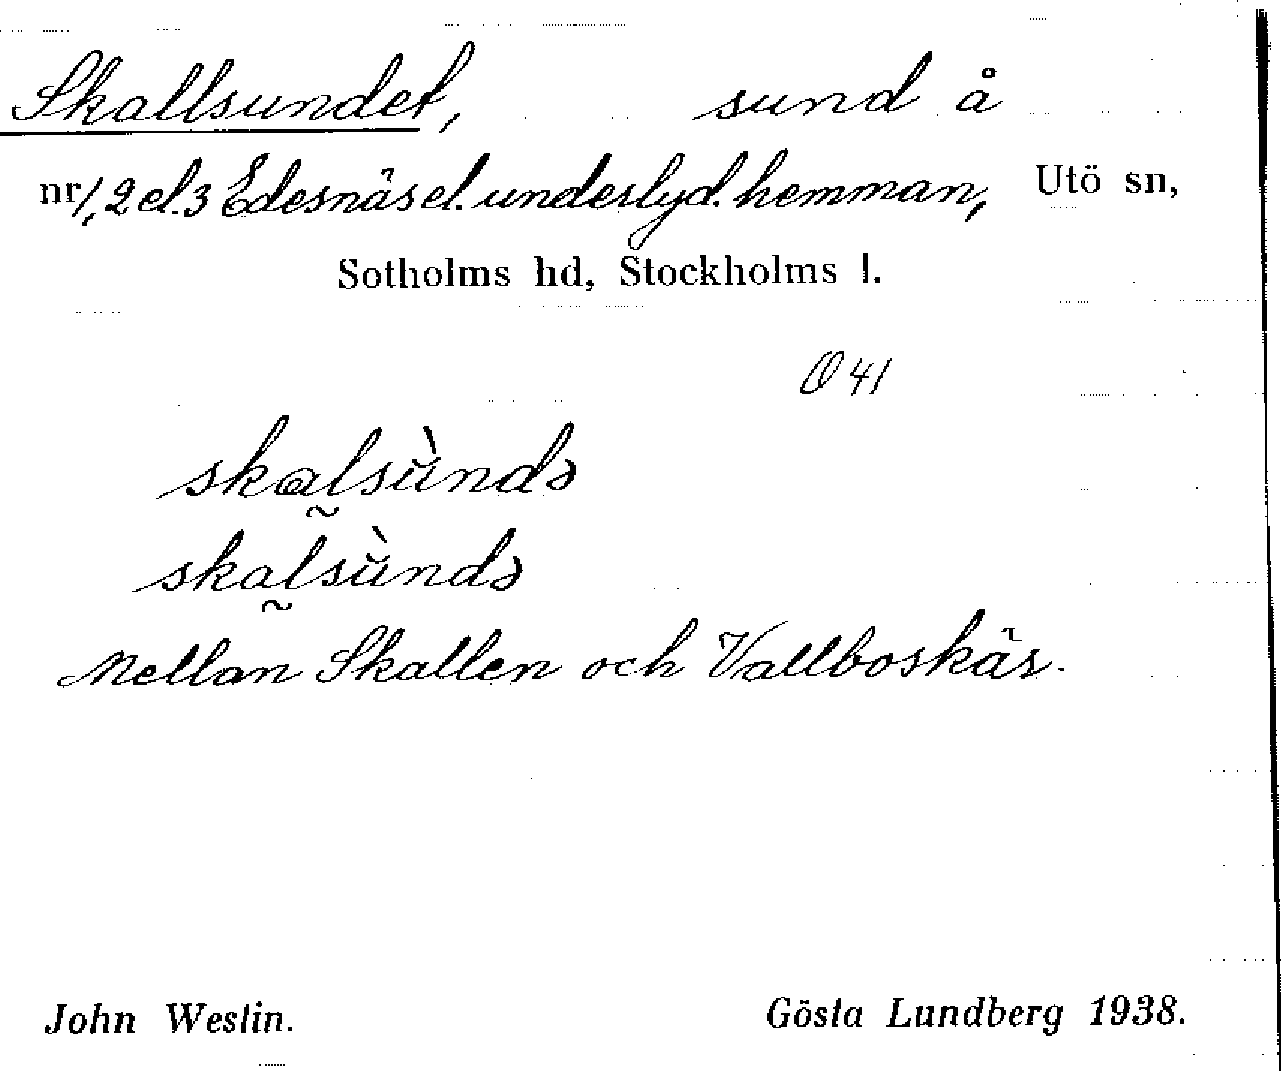 Skallsundet, sund å
nr 1, 2 el. 3 Edesnäs el. underlyd. hemman, Utö sn,
Sotholms hd, Stockholms l.
O 41
skalsùndə
skalsùndə
Mellan Skallen och Vallboskär.
John Westin. Gösta Lundberg 1938.